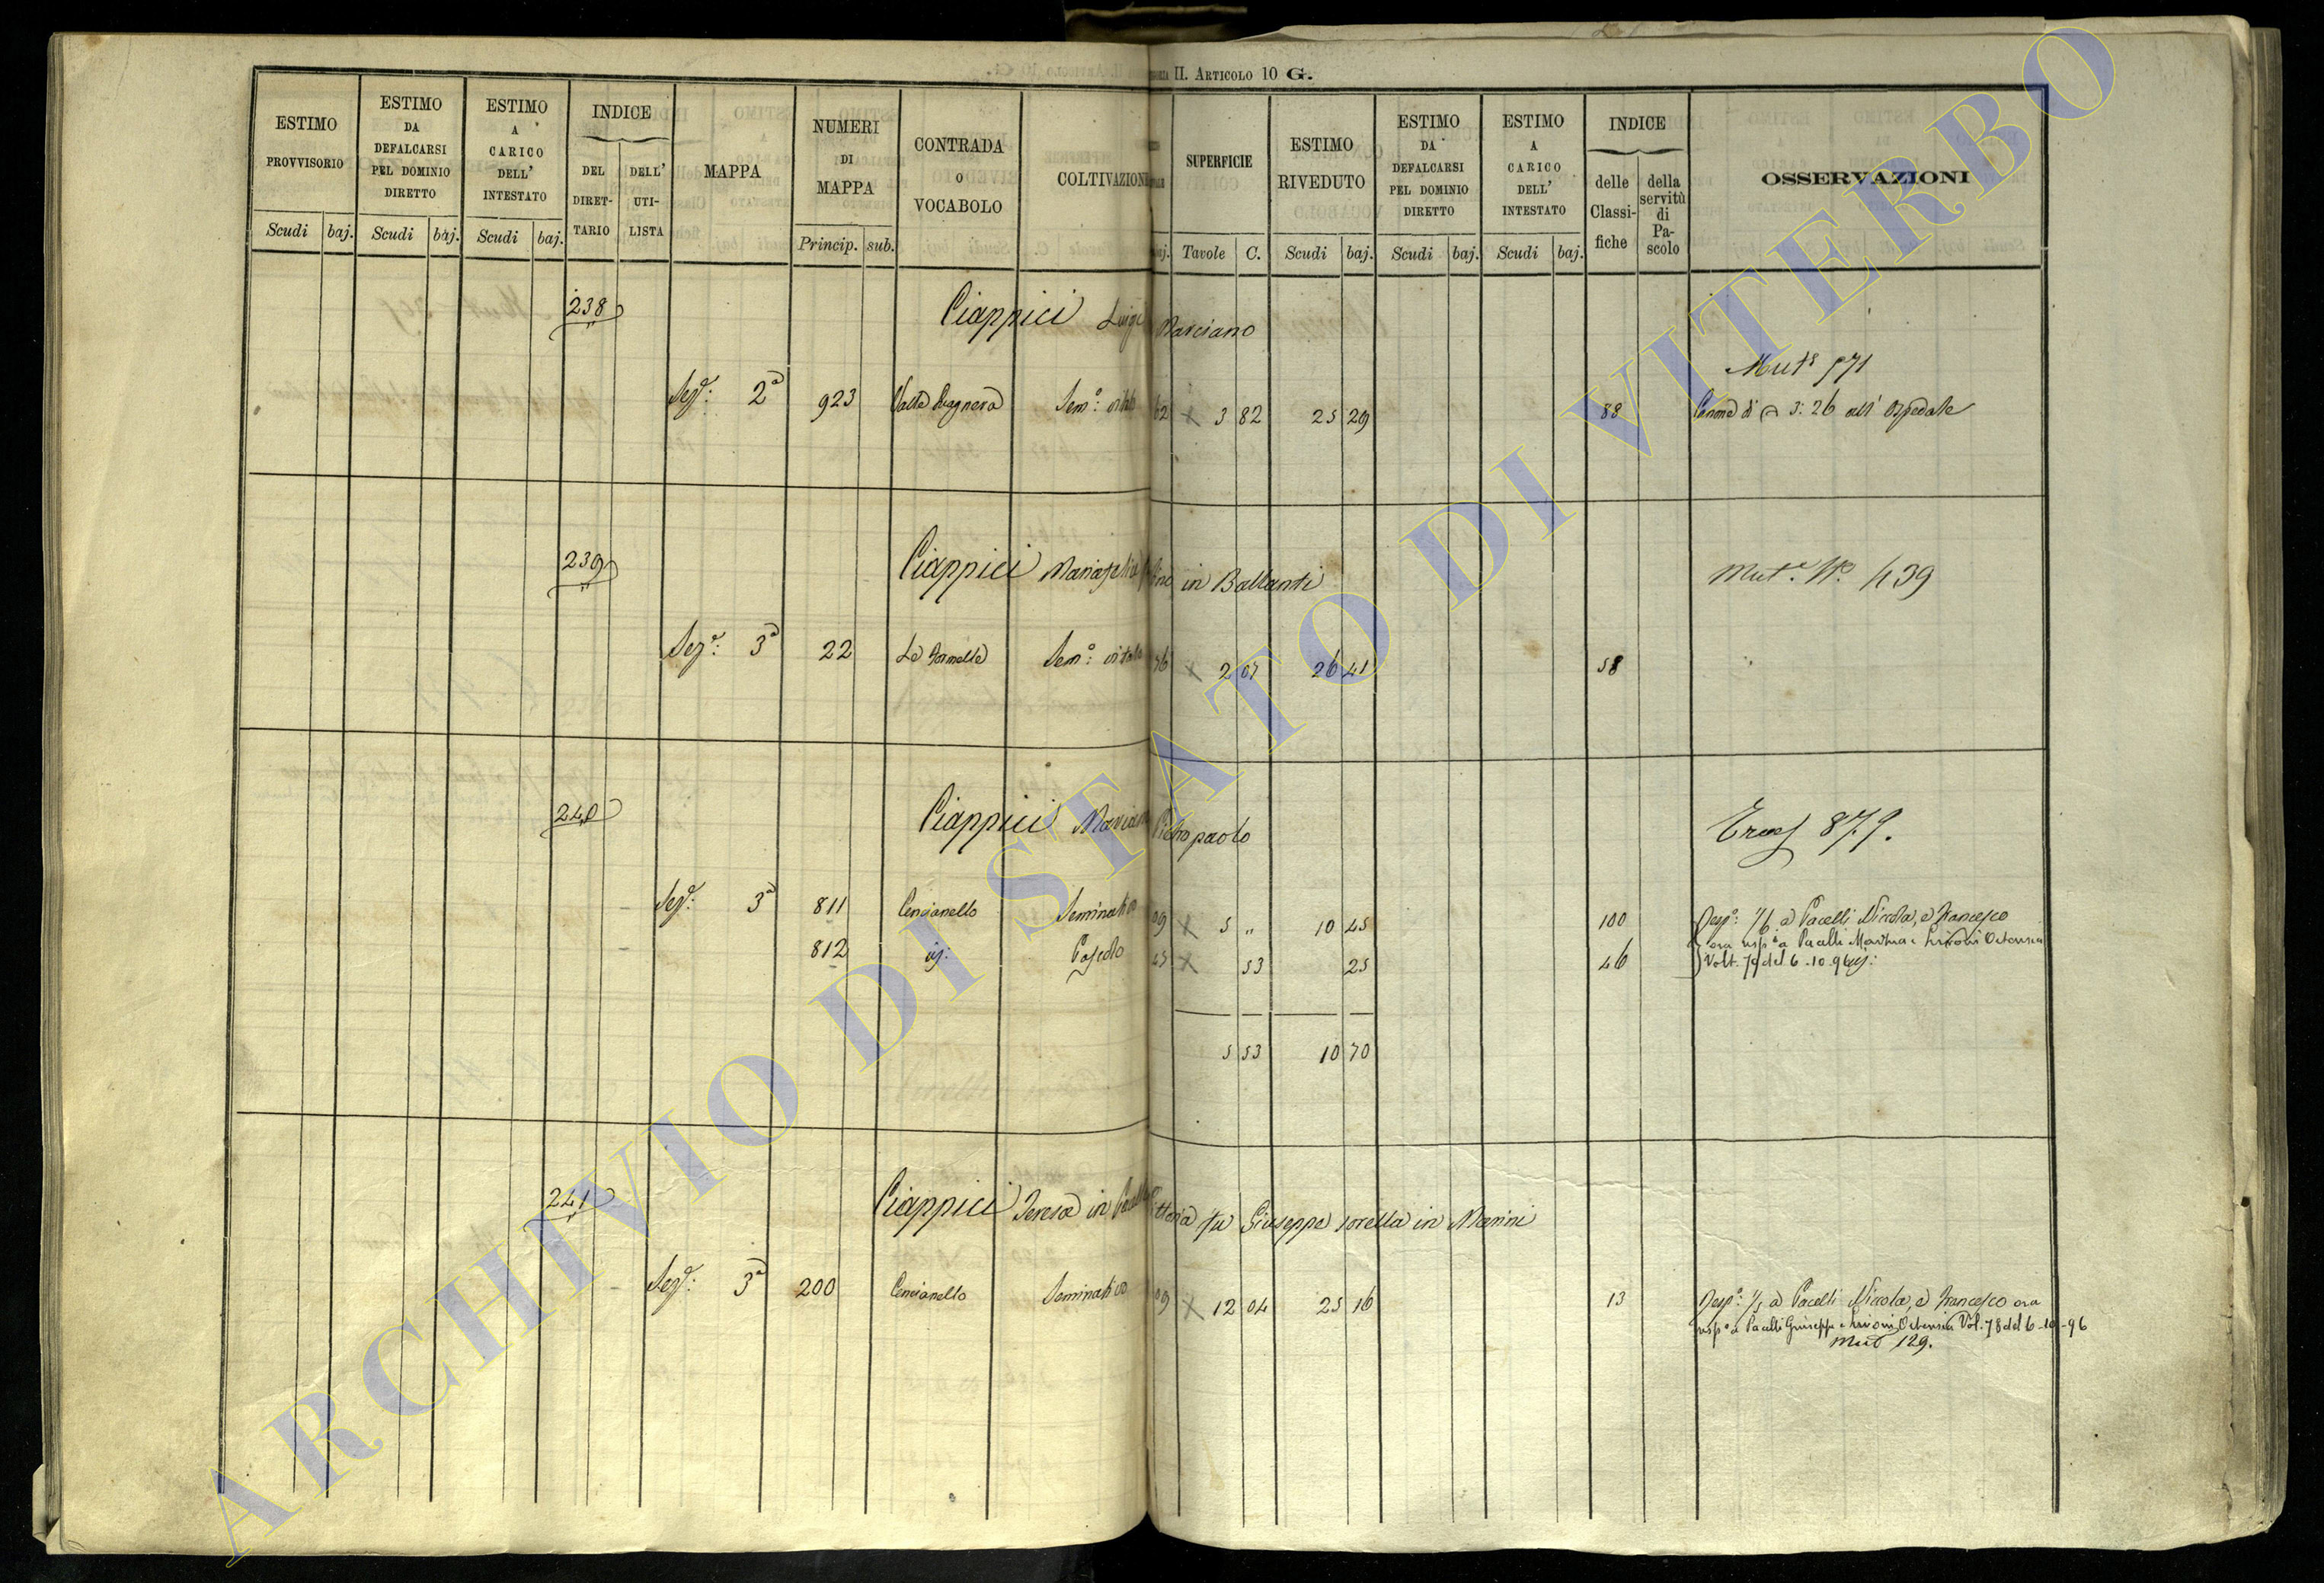 II. ARTICOLO 10 G.
ESTIMO PROVVISORIO
Scudi baj.
ESTIMO DA DEFALCARSI PEL DOMINIO DIRETTO
Scudi baj.
ESTIMO A CARICO DELL' INTESTATO
Scudi baj.
INDICE
DEL DIRET-TARIO
DELL' UTI-LISTA
MAPPA
NUMERI DI MAPPA
Princip. sub.
CONTRADA O VOCABOLO
COLTIVAZIONE
SUPERFICIE
Tavole C.
ESTIMO RIVEDUTO
Scudi baj.
ESTIMO DA DEFALCARSI PEL DOMINIO DIRETTO
Scudi baj.
ESTIMO A CARICO DELL' INTESTATO
Scudi baj.
INDICE
delle Classi-fiche
della servitù di Pa-scolo
OSSERVAZIONI
238 Ciappici Luigi Marciano
Mut.e 571
Sez.e: 2a 923 Sem.o: vitato 62 x 3 82 25 29 88 Canone di 3: 26 all' Ospedale
239 Ciappici in Ballanti
Mut.e N.o 439
Sez.e: 3a 22 Le Sem.o: vitato 76 x 2 07 26 41 58
240 Ciappici Pietropaolo
879.
Sez.e: 3a 811 Cencianello Seminativo 09 x 5 „ 10 45 100 1/6 a Pacelli Niccola, e Francesco
ora usp.o a Pacelli e Ortensia
812 Pascolo 45 x 53 25 46 Volt. 79 del 6-10-96
5 53 10 70
241 Ciappici Teresa in fu Giuseppe sorella in Marini
Sez.e: 3a 200 Cencianello Seminativo 09 x 12 04 25 16 13 a Pacelli Niccola, e Francesco ora
usp.o a Pacelli Giuseppe e Ortensia Vol. 78 del 6-10-96
Mut 129.
ARCHIVIO DI STATO DI VITERBO